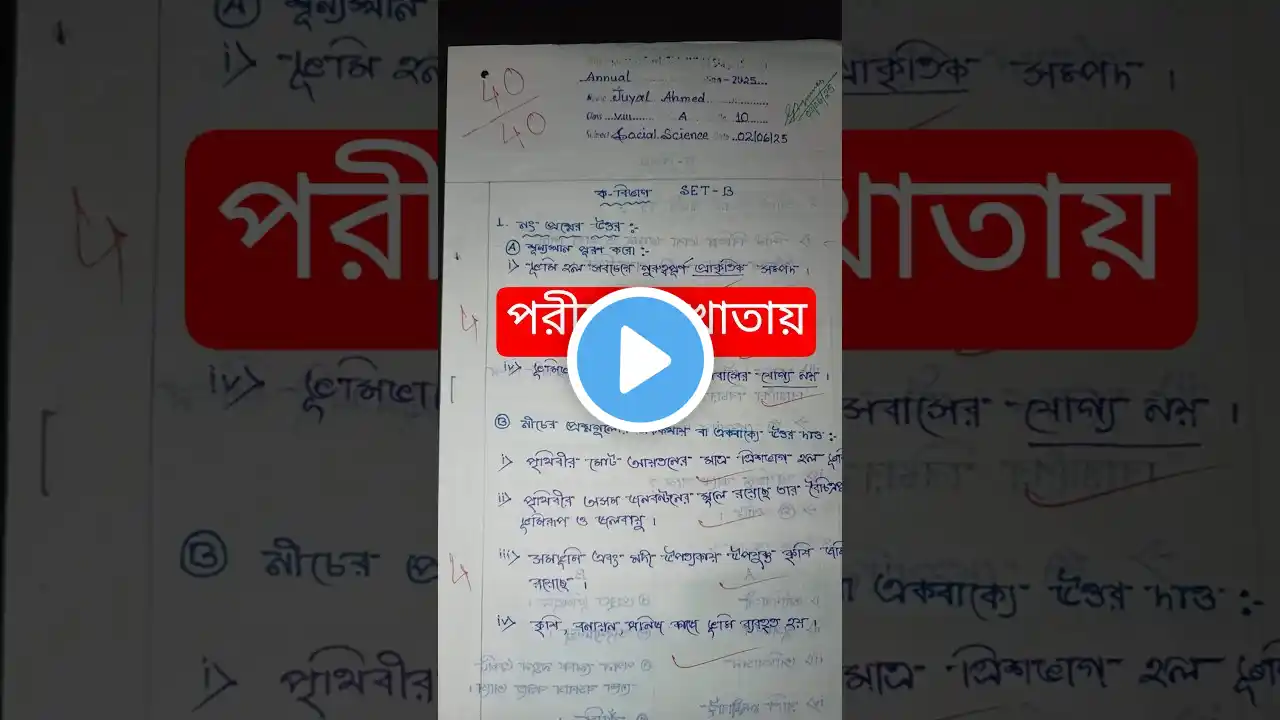 40
40
Annual 2025
Juyal Ahmed
Class VIII A 10
Social Science 02/06/25
ক-বিভাগ SET-B
1. নং প্রশ্নের উত্তর :-
Ⓐ শূন্যস্থান পূরণ করো :-
i> ভূমি হল সবচেয়ে গুরুত্বপূর্ণ প্রাকৃতিক সম্পদ ।
পরীক্ষার খাতায়
iv> বাসের যোগ্য নয় ।
Ⓑ নীচের প্রশ্নগুলোর বা একবাক্যে উত্তর দাও :-
i> পৃথিবীর মোট আয়তনের মাত্র ত্রিশভাগ হল
ii> পৃথিবীর অসম জনবন্টনের মূলে রয়েছে তার
ভূমিরূপ ও জলবায়ু ।
iii> সমভূমি এবং নদী উপত্যকায় উপযুক্ত কৃষি
রয়েছে ।
iv> কৃষি, বনায়ন, খনিজ কাজে ভূমি ব্যবহৃত হয় ।
4
4
4